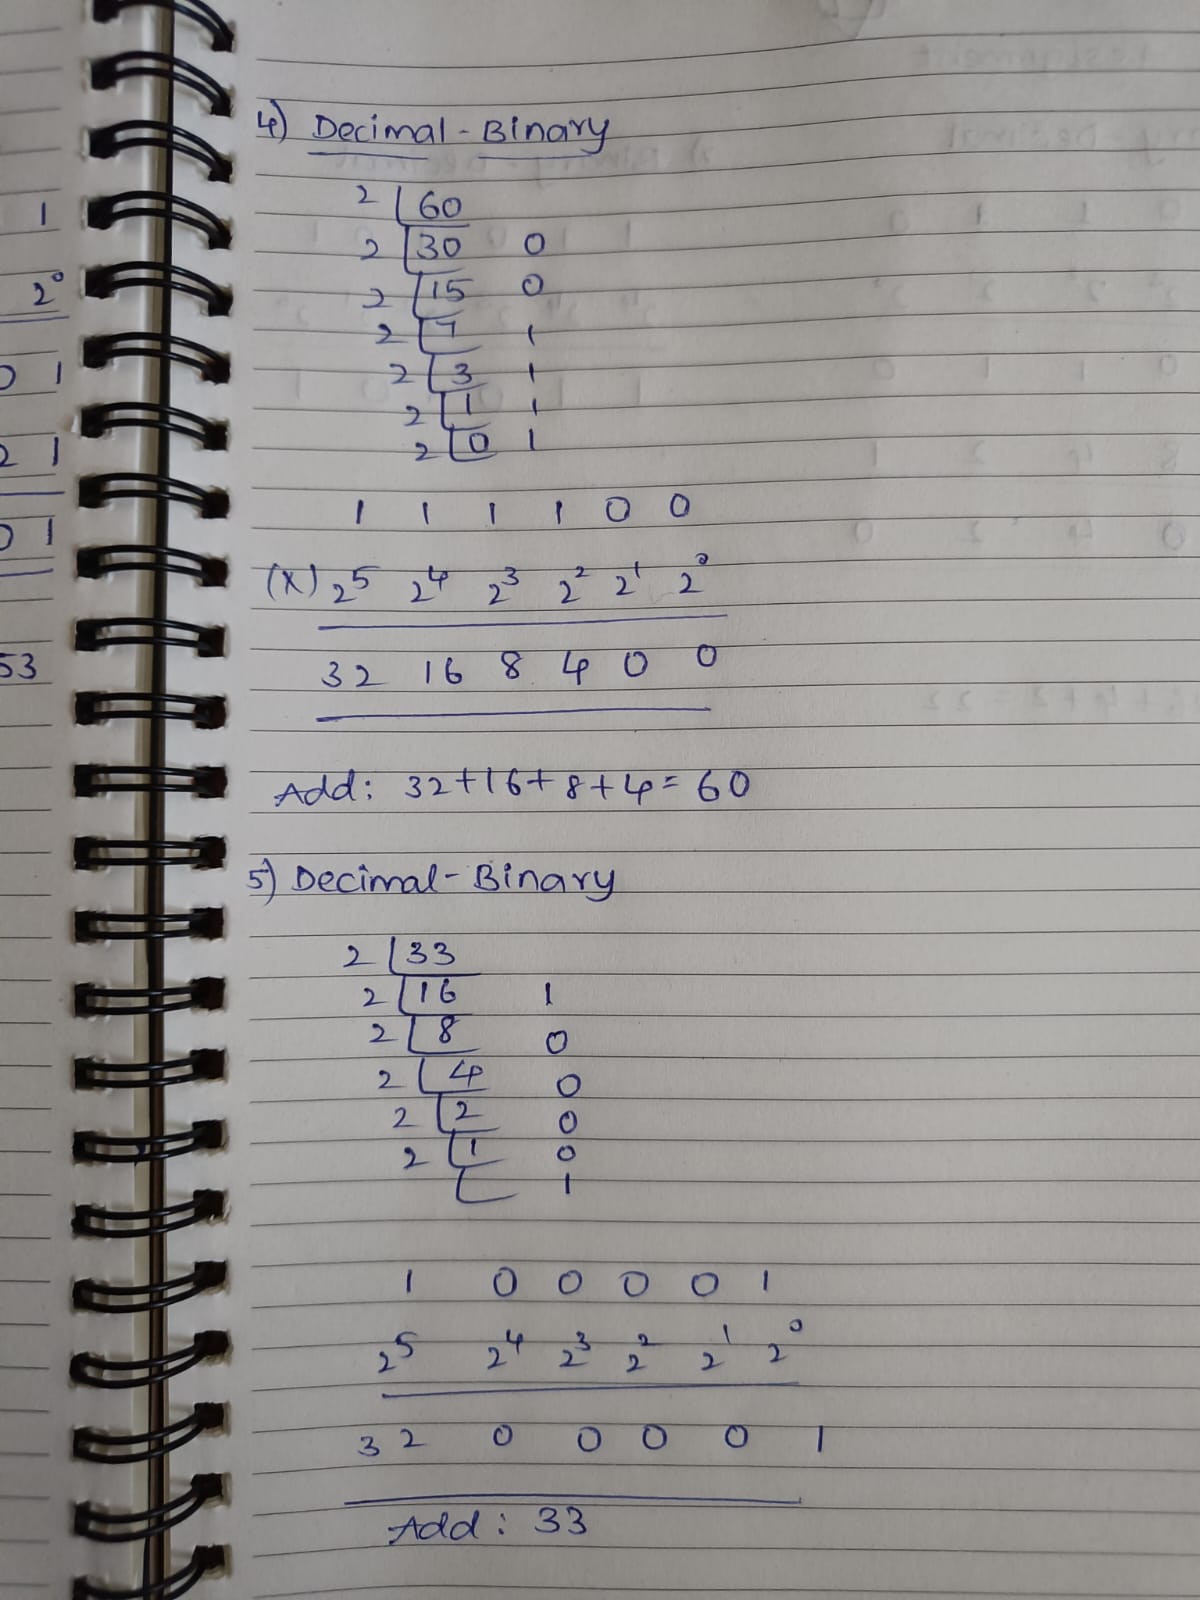 1
2⁰
0 1
2 1
0 1
53
4) Decimal - Binary
2 60
2 30 0
2 15 0
2 7 1
2 3 1
2 1 1
2 0 1
1 1 1 1 0 0
(x) 2⁵ 2⁴ 2³ 2² 2¹ 2⁰
32 16 8 4 0 0
Add: 32+16+8+4=60
5) Decimal - Binary
2 33
2 16 1
2 8 0
2 4 0
2 2 0
2 1 0
1
1 0 0 0 0 1
2⁵ 2⁴ 2³ 2² 2¹ 2⁰
32 0 0 0 0 1
Add: 33